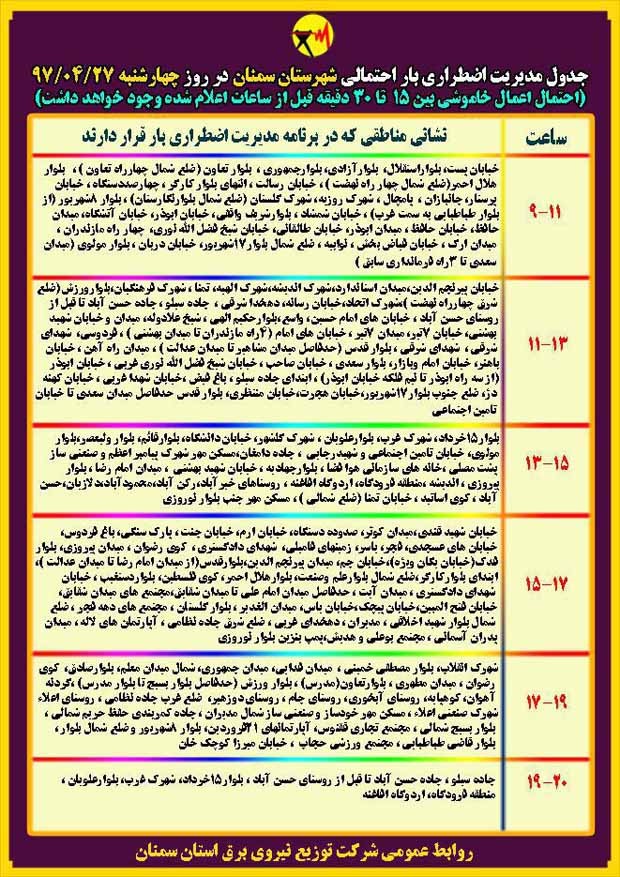 جدول مدیریت اضطراری بار احتمالی شهرستان سمنان در روز چهارشنبه ۹۷/۰۴/۲۷
(احتمال اعمال خاموشی بین ۱۵ تا ۳۰ دقیقه قبل از ساعات اعلام شده وجود خواهد داشت)
ساعت
نشانی مناطقی که در برنامه مدیریت اضطراری بار قرار دارند
۹-۱۱
خیابان پست، بلوار استقلال، بلوار آزادی، بلوار جمهوری ، بلوار تعاون (ضلع شمال چهارراه تعاون ) ، بلوار
هلال احمر(ضلع شمال چهار راه نهضت ) ، خیابان رسالت ، انتهای بلوار کارگر ، چهارصددستگاه ، خیابان
پرستار، جانبازان ، پامچال ، شهرک روزبه، شهرک گلستان (ضلع شمال بلوارنگارستان) ، بلوار ۸شهریور (از
بلوار طباطبایی به سمت غرب) ، خیابان شمشاد ، بلوارشریف واقفی، خیابان ابوذر، خیابان آتشگاه، میدان
حافظ، خیابان حافظ ، میدان ابوذر، خیابان طالقانی، خیابان شیخ فضل الله نوری، چهار راه مازندران ،
میدان ارک ، خیابان فیاض بخش ، نوابیه ، ضلع شمال بلوار ۱۷شهریور، خیابان دربان ، بلوار مولوی (میدان
سعدی تا ۳راه فرمانداری سابق )
۱۱-۱۳
خیابان پیرنجم الدین، میدان استاندارد، شهرک اندیشه، شهرک الهیه، تمنا ، شهرک فرهنگیان، بلوارورزش(ضلع
شرق چهارراه نهضت )،شهرک اتحاد، خیابان رسانه، دهخدا شرقی ، جاده سیلو ، جاده حسن آباد تا قبل از
روستای حسن آباد ، خیابان های امام حسین، واسع، بلوارحکیم الهی ، شیخ علاءدوله، میدان و خیابان شهید
بهشتی، خیابان ۷تیر، میدان ۷تیر ، خیابان های امام (۴راه مازندران تا میدان بهشتی ) ، فردوسی، شهدای
شرقی ، شهدای شرقی ، بلوار قدس (حدفاصل میدان مشاهیر تا میدان عدالت ) ، میدان راه آهن ، خیابان
باهنر، خیابان امام وبازار، بلوار سعدی ، خیابان صاحب ، خیابان شیخ فضل الله نوری غربی ، خیابان ابوذر
(از سه راه ابوذر تا نیم فلکه خیابان ابوذر) ، ابتدای جاده سیلو ، باغ فیض، خیابان شهدا غربی ، خیابان کهنه
دژ، ضلع جنوب بلوار ۱۷شهریور، خیابان هجرت، خیابان منتظری، بلوار قدس حدفاصل میدان سعدی تا خیابان
تامین اجتماعی
۱۳-۱۵
بلوار۱۵خرداد، شهرک غرب، بلوارعلویان ، شهرک گلشهر، خیابان دانشگاه، بلوارقائم، بلوار ولیعصر، بلوار
مولوی، خیابان تامین اجتماعی و شهیدرجایی ، جاده دامغان، مسکن مهر شهرک پیامبر اعظم و صنعتی ساز
پشت مصلی ، خانه های سازمانی هوا فضا ، بلوارجهادیه ، خیابان شهید بهشتی ، میدان امام رضا ، بلوار
پیروزی ، اندیشه ،منطقه فرودگاه، اردوگاه افاغنه ، روستاهای خیرآباد، رکن آباد، محمودآباد، دلازیان، حسن
آباد ، کوی اساتید ، خیابان تمنا (ضلع شمالی ) ، مسکن مهر جنب بلوار نوروزی
۱۵-۱۷
خیابان شهید قندی، میدان کوثر، صدوده دستگاه، خیابان ارم، خیابان جنت ، پارک سنگی، باغ فردوس،
خیابان های عسجدی، فجر، یاسر، زمینهای فامیلی، شهدای دادگستری ، کوی رضوان ، میدان پیروزی، بلوار
فدک(خیابان یگان ویژه)، خیابان جم، میدان پیرنجم الدین، بلوارقدس(از میدان امام رضا تا میدان عدالت )،
ابتدای بلوارکارگر، ضلع شمال بلوارعلم وصنعت، بلوار هلال احمر، کوی فلسطین، بلواردستغیب ، خیابان
شهدای دادگستری ، میدان آیت ، حدفاصل میدان امام علی تا میدان شقایق، مجتمع های میدان شقایق،
خیابان فتح المبین، خیابان پیچک، خیابان یاس، میدان الغدیر ، بلوار گلستان ، مجتمع های دهه فجر ، ضلع
شمال بلوار شهید اخلاقی ، مدیران ، دهخدای غربی ، ضلع شرق جاده نظامی ، آپارتمان های لاله ، میدان
پدران آسمانی ، مجتمع بوعلی و هدیش، پمپ بنزین بلوار نوروزی
۱۷-۱۹
شهرک انقلاب، بلوار مصطفی خمینی ، میدان فدایی، میدان جمهوری، شمال میدان معلم، بلوارصادق، کوی
رضوان ، میدان مطهری ، بلوارتعاون(مدرس) ، بلوار ورزش (حدفاصل بلوار بسیج تا بلوار مدرس) ،گردنه
آهوان، کوهپایه، روستای آبخوری، روستای جام ، روستای دوزهیر، ضلع غرب جاده نظامی ، روستای اعلاء
شهرک صنعتی اعلاء ، مسکن مهر خودساز و صنعتی ساز شمال مدیران ، جاده کمربندی حفظ حریم شمالی ،
بلوار بسیج شمالی ، مجتمع تجاری ققنوس، آپارتمانهای ۲۱فروردین، بلوار ۸شهریور و ضلع شمال بلوار،
بلوار قاضی طباطبایی ، مجتمع ورزشی حجاب ، خیابان میرزا کوچک خان
۱۹-۲۰
جاده سیلو ، جاده حسن آباد تا قبل از روستای حسن آباد ، بلوار۱۵خرداد، شهرک غرب، بلوارعلویان ،
منطقه فرودگاه، اردوگاه افاغنه
روابط عمومی شرکت توزیع نیروی برق استان سمنان